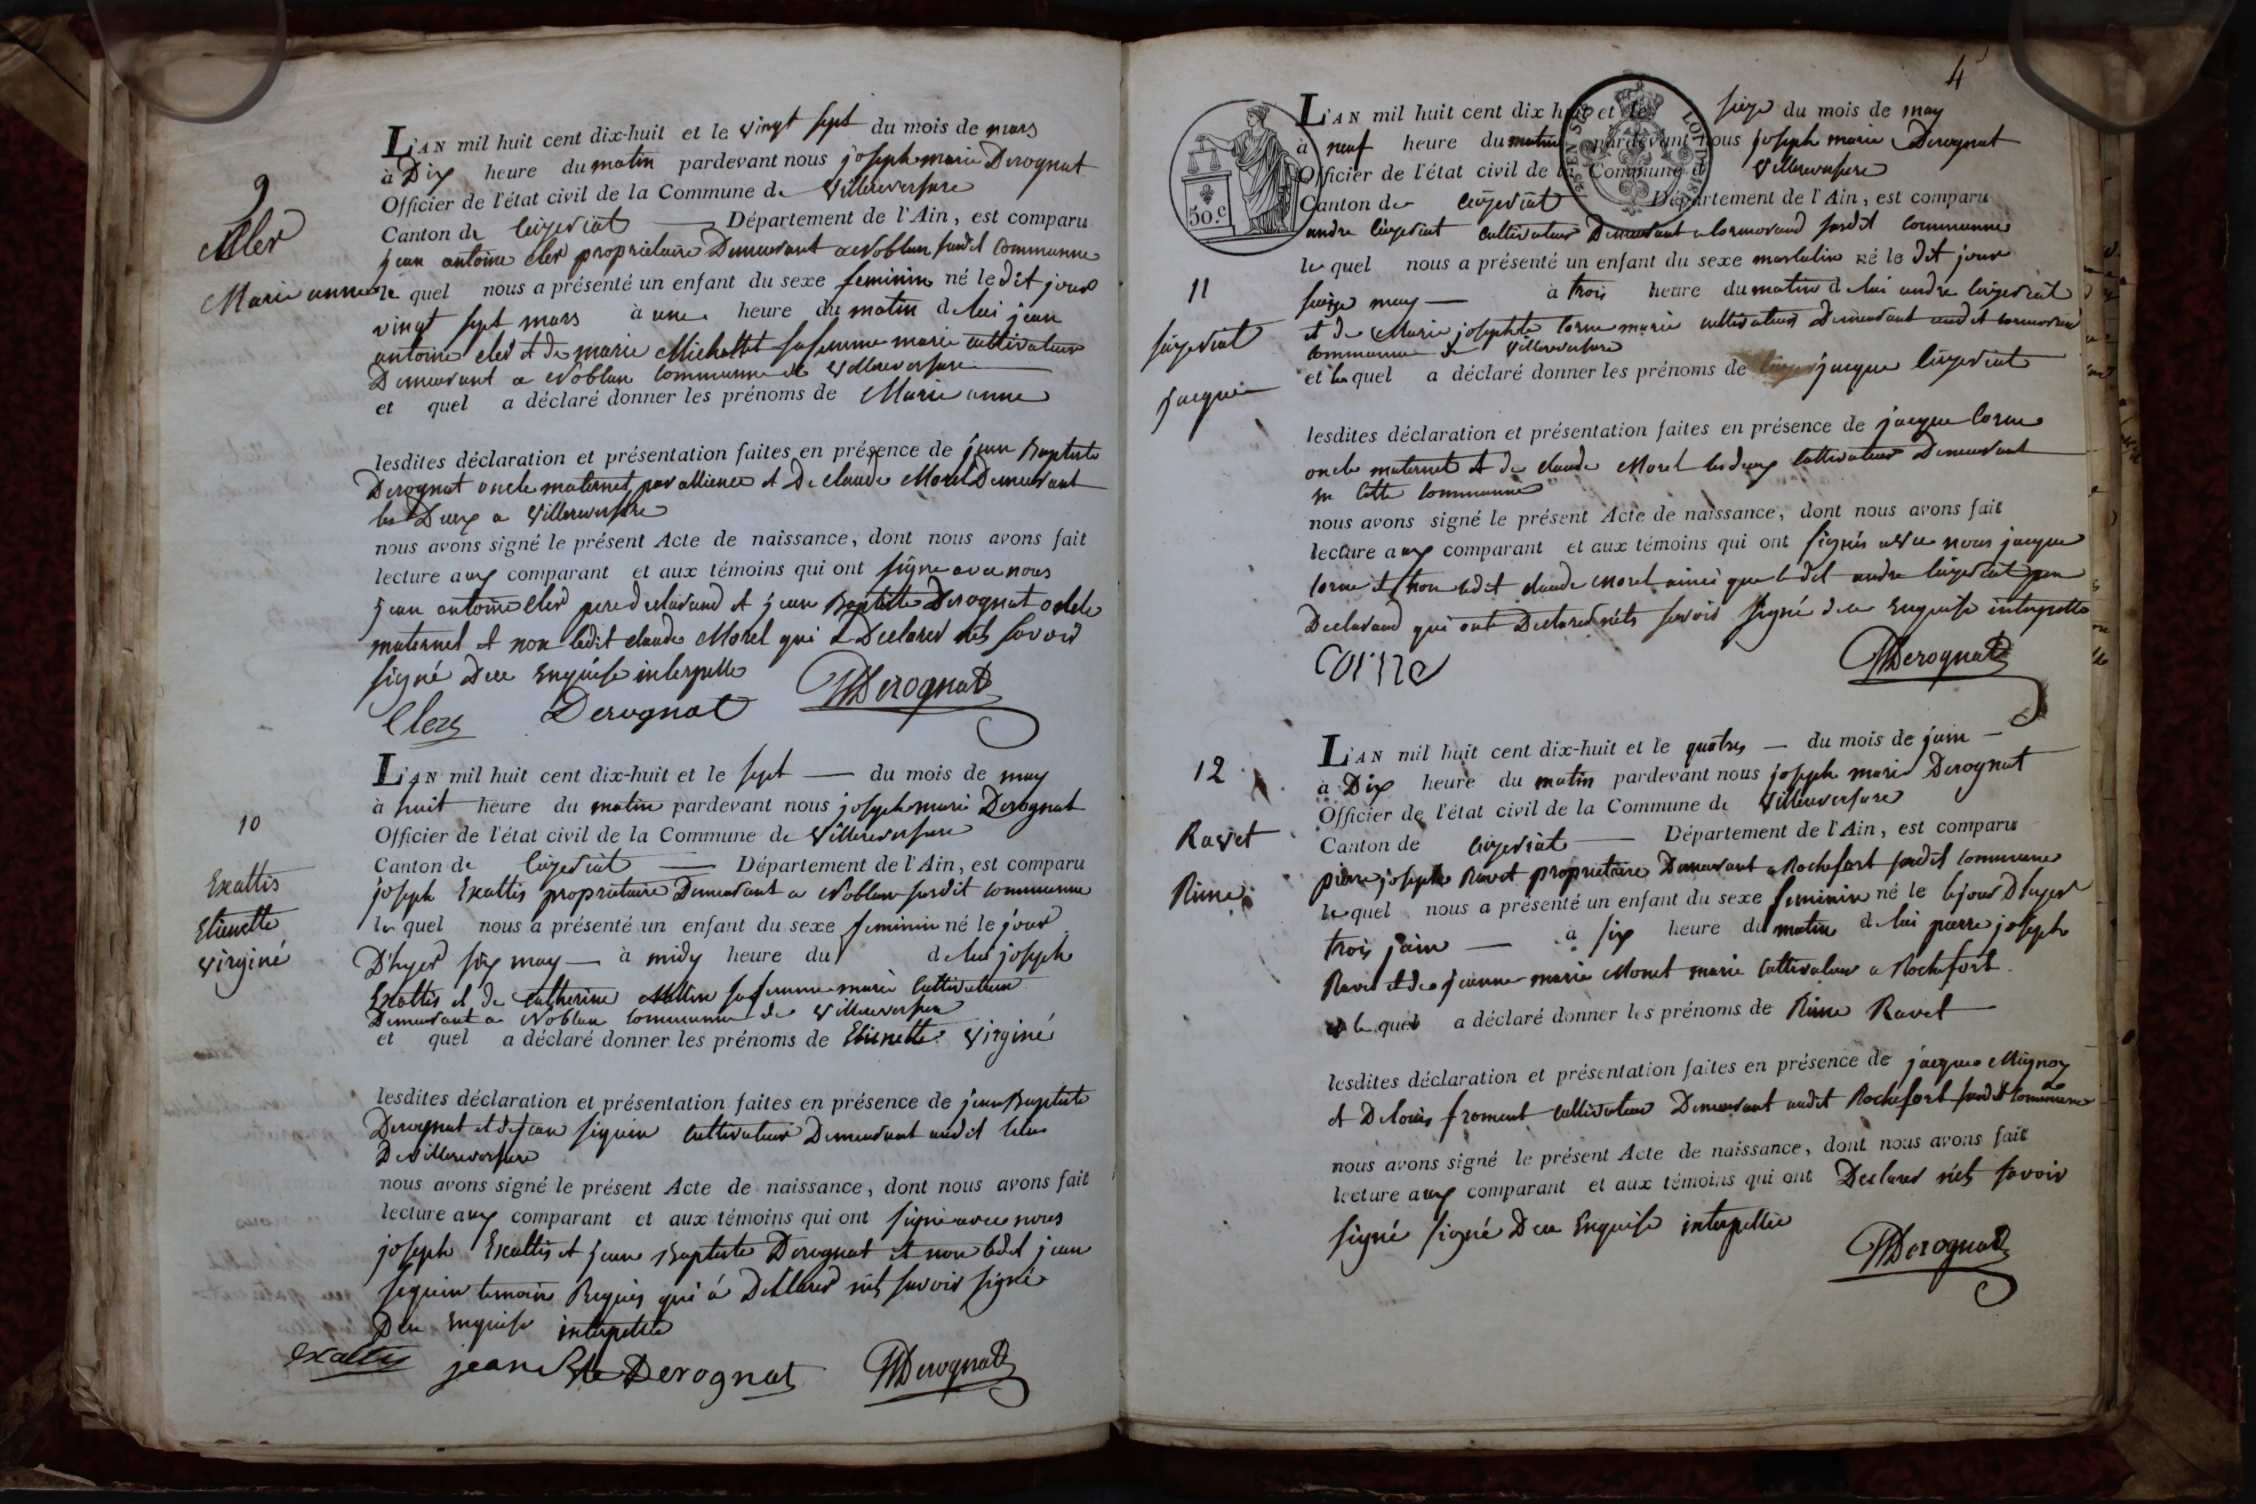 9
Cler
Marie anne
L'AN mil huit cent dix-huit et le vingt sept du mois de mars
à Dix heure du matin pardevant nous joseph marie Derognat
Officier de l'état civil de la Commune de Villereversure
Canton de Ceyzeriat Département de l'Ain, est comparu
jean antoine cler propriétaire Demeurant a Noblan susdit Commune
le quel nous a présenté un enfant du sexe feminin né le dit jour
vingt sept mars à une heure du matin de lui jean
antoine cler et de marie Michollet sa femme marie cultivateur
Demeurant a Noblan commune de Villereversure
et quel a déclaré donner les prénoms de Marie anne
lesdites déclaration et présentation faites en présence de jean Baptiste
Derognat oncle maternel par allience et De claude Morel Demeurant
les Deux a Villereversure
nous avons signé le présent Acte de naissance, dont nous avons fait
lecture aux comparant et aux témoins qui ont signe avec nous
jean antoine Cler pere declarand et jean Baptiste Derognat oncle
maternel et non ledit claude Morel qui a Declarer nêt savoir
signé Dece Enquise interpelle
Clerc Derognat JMDerognat
10
Exattis
Etienette
Virginé
L'AN mil huit cent dix-huit et le sept du mois de may
à huit heure du matin pardevant nous joseph marie Derognat
Officier de l'état civil de la Commune de Villereversure
Canton de Ceyzeriat Département de l'Ain, est comparu
joseph Exattis propriétaire Demeurant a Noblan susdit commune
le quel nous a présenté un enfant du sexe feminin né le jour
D'hyer six may à midy heure du de lui joseph
Exattis et de catherine sa femme marie Cultivateur
Demeurant a Noblan commune de Villereversure
et quel a déclaré donner les prénoms de Etienette Virginé
lesdites déclaration et présentation faites en présence de jean Baptiste
Derognat et de jean siguin cultivateur Demeurant audit lieu
De Villereversure
nous avons signé le présent Acte de naissance, dont nous avons fait
lecture aux comparant et aux témoins qui ont signe avec nous
joseph Exattis et jean Baptiste Derognat et non ledit jean
siguin temoin Requis qui a Declarer nêt savoir signé
Dece Enquise interpelle
exattis jean Bte Derognat JMDerognat
4
50.c
L'AN mil huit cent dix huit et le seize du mois de may
à neuf heure du matin pardevant nous joseph marie Derognat
Officier de l'état civil de la Commune d Villereversure
Canton de Ceyzeriat Département de l'Ain, est comparu
andre Ceyzeriat cultivateur Demeurant a Cormorand susdit commune
le quel nous a présenté un enfant du sexe masculin né le dit jour
seize may à trois heure du matin de lui andre Ceyzeriat
et de Marie josephte Corne marie cultivateur Demeurant audit cormorand
commune de Villereversure
et le quel a déclaré donner les prénoms de jacque Ceyzeriat
11
Ceyzeriat
jacque
lesdites déclaration et présentation faites en présence de jacque Corne
oncle maternel et de claude Morel les deux Cultivateur Demeurant
en Cette commune
nous avons signé le présent Acte de naissance, dont nous avons fait
lecture aux comparant et aux témoins qui ont signés avec nous jacque
Corne et non ledit claude morel ainsi que ledit andre Ceyzeriat pere
Declarand qui ont Declarer nêts savoir signé dece Enquise interpelle
corne JMDerognat
12
Ravet
Rine
L'AN mil huit cent dix-huit et le quatres du mois de juin
à Dix heure du matin pardevant nous joseph marie Derognat
Officier de l'état civil de la Commune de Villereversure
Canton de Ceyzeriat Département de l'Ain, est comparu
pierre joseph Ravet propriétaire Demeurant a Rochefort susdit commune
le quel nous a présenté un enfant du sexe feminin né le le jour D'huyer
trois juin à six heure du matin de lui pierre joseph
Ravet et de jeanne marie Monet marie Cultivateur a Rochefort
et le quel a déclaré donner les prénoms de Rine Ravet
lesdites déclaration et présentation faites en présence de jacque Mignon
et De louis froment cultivateur Demeurant audit Rochefort susdit Commune
nous avons signé le présent Acte de naissance, dont nous avons fait
lecture aux comparant et aux témoins qui ont Declarer nêts savoir
signé signé Dece Enquise interpellée
JMDerognat